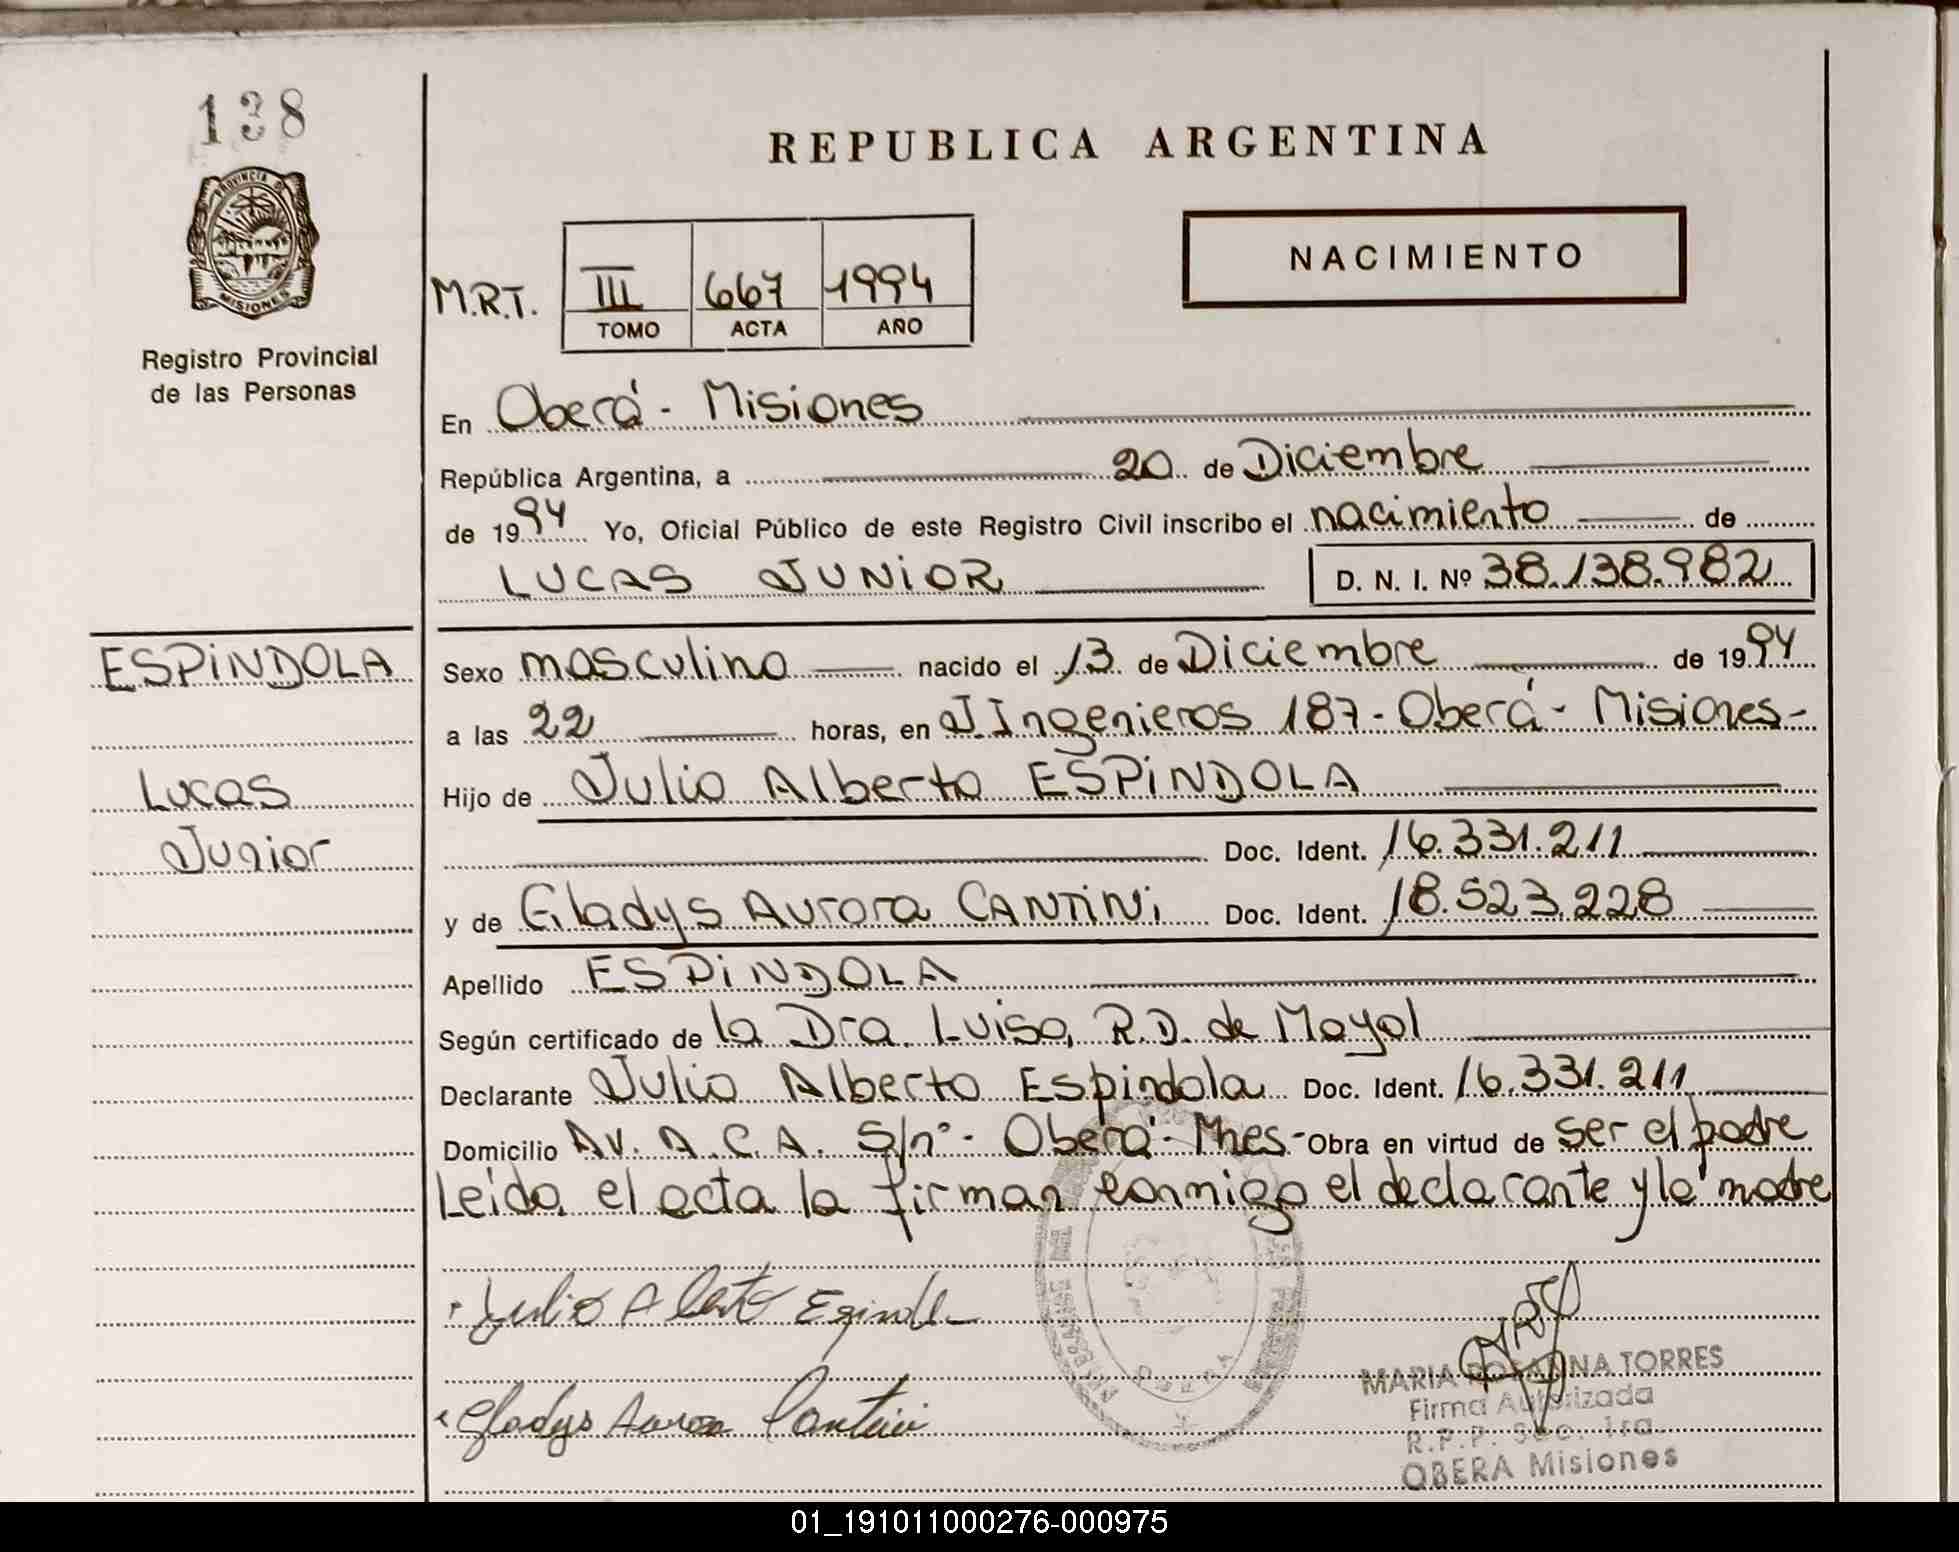 138
PROVINCIA DE
MISIONES
Registro Provincial
de las Personas
REPUBLICA ARGENTINA
NACIMIENTO
M.R.T. III 667 1994
TOMO ACTA AÑO
En Oberá - Misiones
República Argentina, a 20 de Diciembre
de 1994 Yo, Oficial Público de este Registro Civil inscribo el nacimiento de
LUCAS JUNIOR D. N. I. Nº 38.138.982
ESPINDOLA
Lucas
Junior
Sexo masculino nacido el 13 de Diciembre de 1994
a las 22 horas, en J. Ingenieros 187 - Oberá - Misiones -
Hijo de Julio Alberto ESPINDOLA
Doc. Ident. 16.331.211
y de Gladys Aurora CANTINI Doc. Ident. 18.523.228
Apellido ESPINDOLA
Según certificado de la Dra. Luisa R.D. de Mayol
Declarante Julio Alberto Espindola Doc. Ident. 16.331.211
Domicilio Av. A.C.A. S/nº - Oberá - Mnes - Obra en virtud de ser el padre
Leida el acta la firman conmigo el declarante y la madre
Julio Alberto Espindola
Gladys Aurora Cantini
MARIA ROSANNA TORRES
Firma Autorizada
R.P.P. Sec. 1ra.
OBERA Misiones
01_191011000276-000975